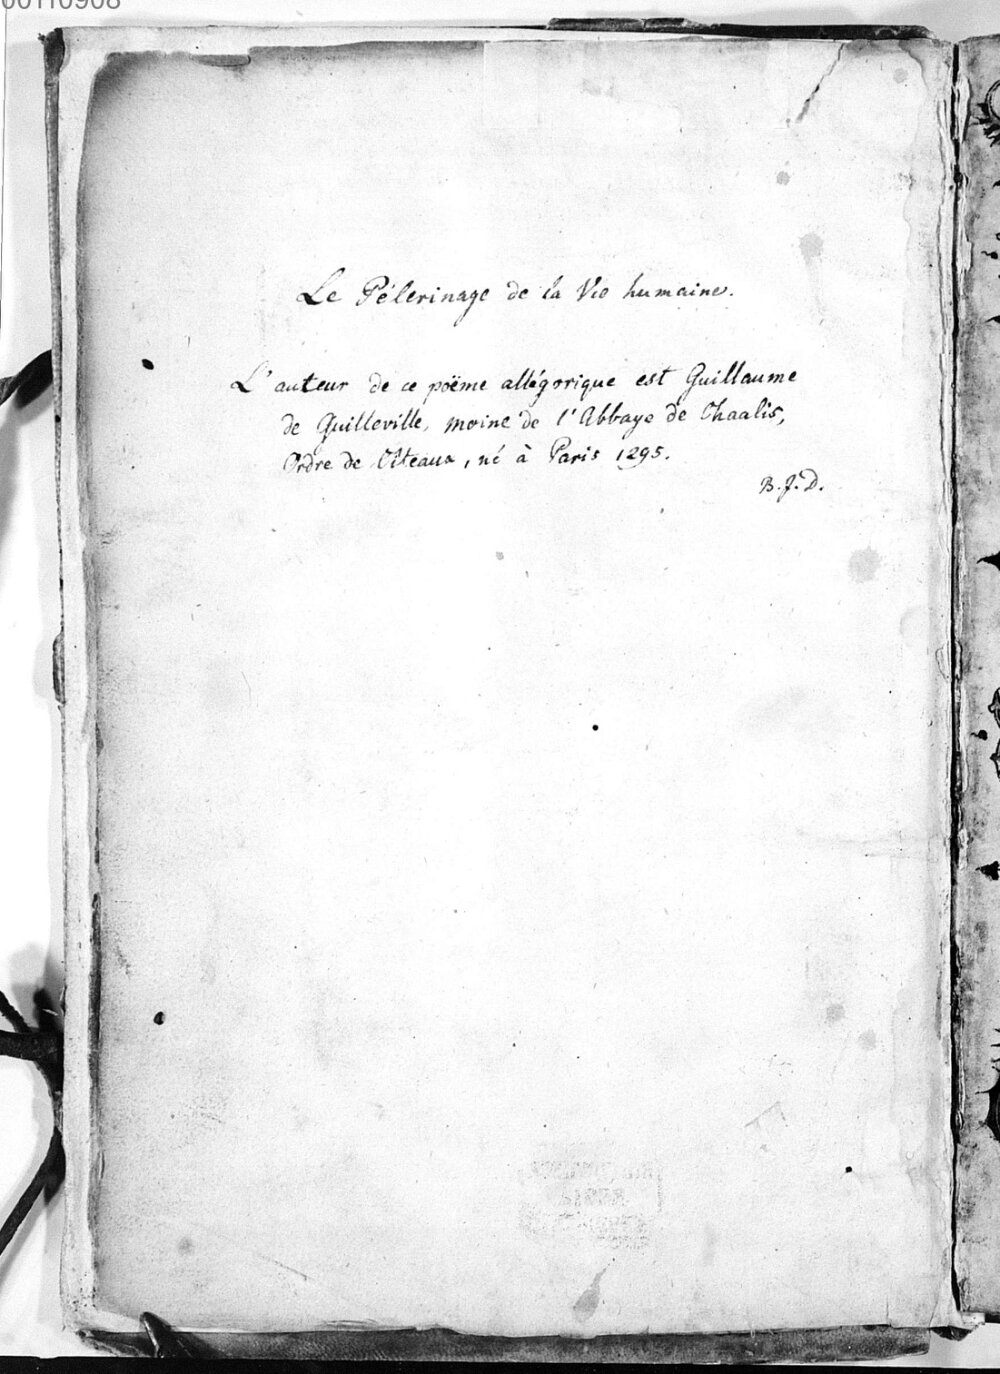 00110908
Le Pélerinage de la Vie humaine.
L'auteur de ce poëme allégorique est Guillaume
de Guilleville, moine de l'Abbaye de Chaalis,
Ordre de Citeaux, né à Paris 1295.
B.J.D.